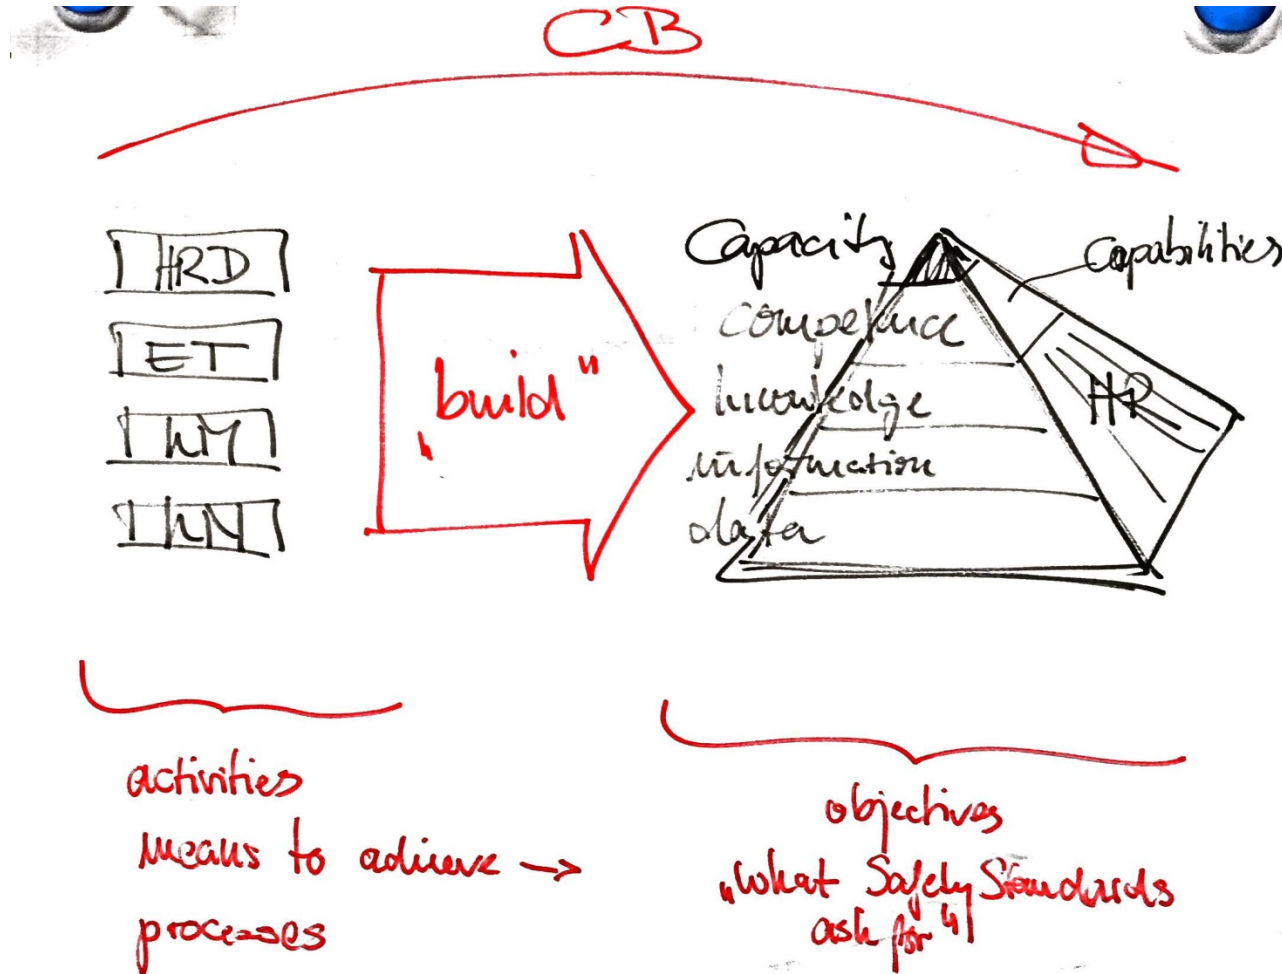 CB
HRD
ET
KM
KN
„build"
Capacity
competence
knowledge
information
data
Capabilities
HR
activities
means to achieve →
processes
objectives
„What Safety Standards
ask for"